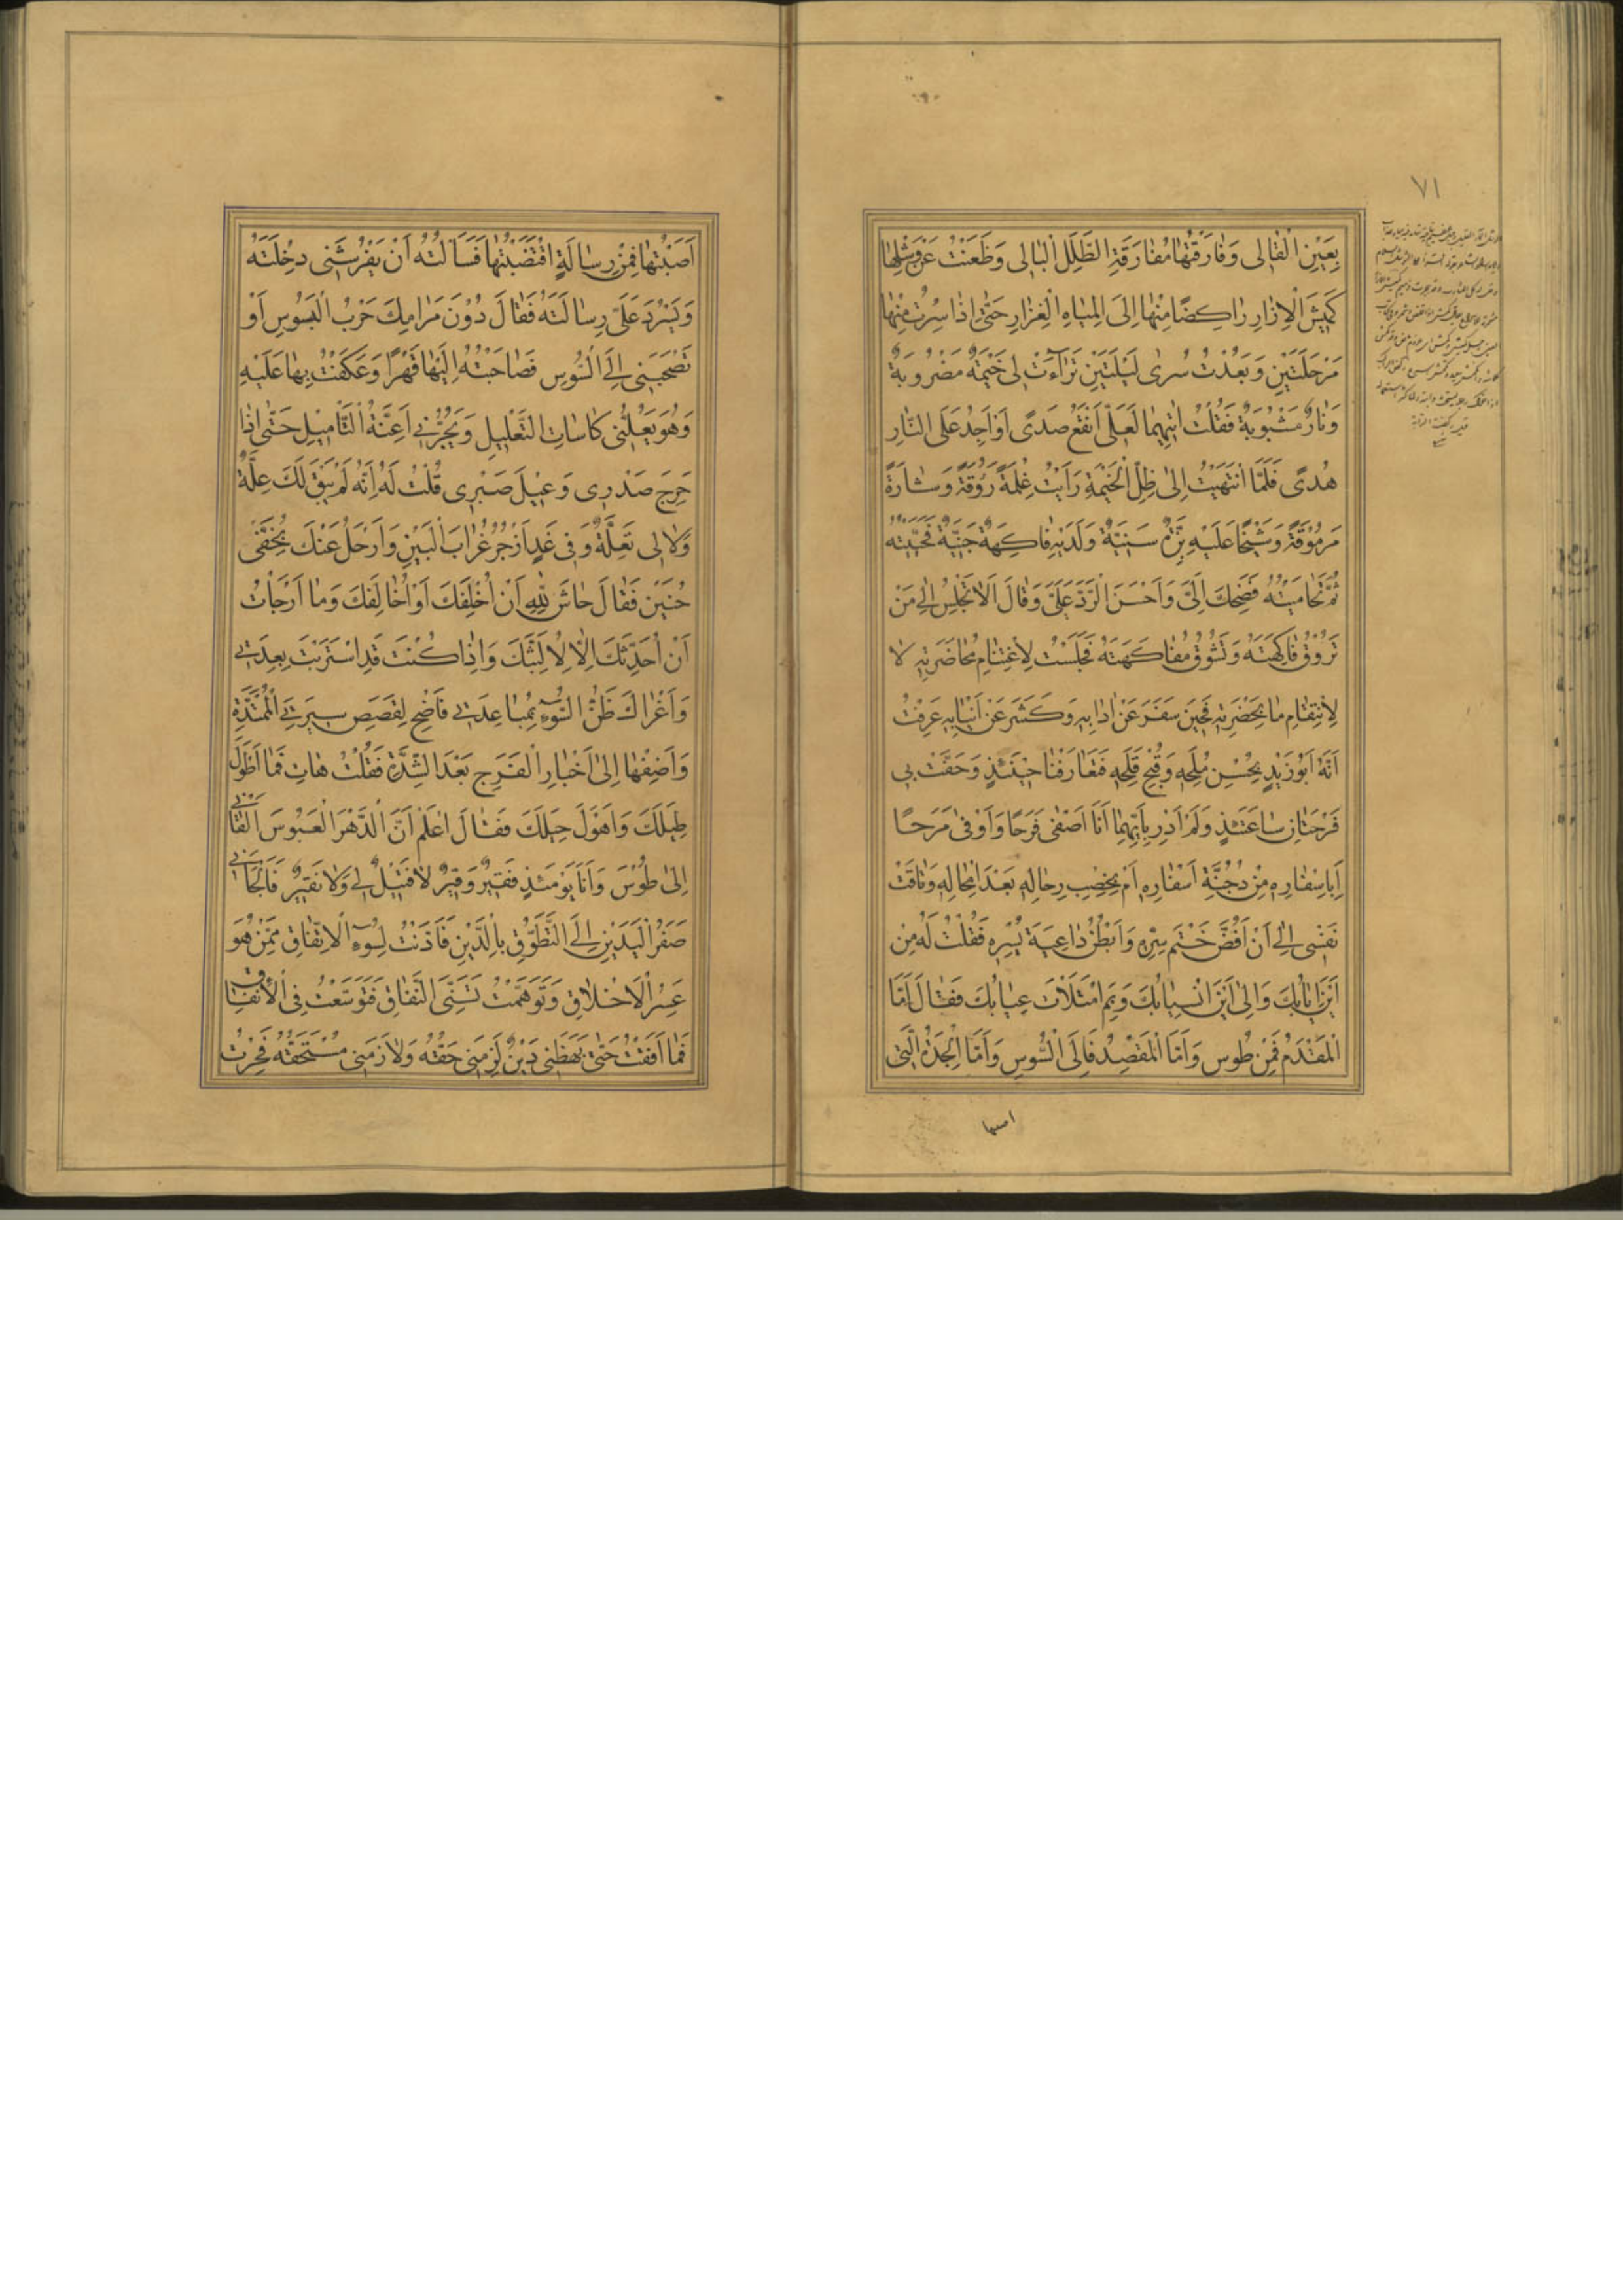 ٧١
بِعَيْنِ الْقٰالى وَفٰارَقْتُهٰا مُفٰارَقَةِ الطَّلَلِ الْبٰالى وَظَعَنْتُ عَنْ وَشْلِهٰا
كَمِيْشَ الْاِزٰارِ رٰاكِضًا مِنْهٰا اِلَى الْمِيٰاهِ الْغِزٰارِ حَتّٰى اِذٰا سِرْتُ مِنْهٰا
مَرْحَلَتَيْنِ وَبَعُدْتُ سُرٰى لَيْلَتَيْنِ تَرٰاءَتْ لى خَيْمَةٌ مَضْرُوبَةٌ
وَنٰارٌ مَشْبُوبَةٌ فَقُلْتُ اٰتِيهِمٰا لَعَلّى اَنْقَعُ صَدًى اَوْ اَجِدُ عَلَى النّٰارِ
هُدًى فَلَمَّا انْتَهَيْتُ اِلىٰ ظِلِّ الْخَيْمَةِ رَاَيْتُ غِلْمَةً رُوْقَةً وَشٰارَةً
مَرْمُوْقَةً وَشَيْخًا عَلَيْهِ بِزَّةٌ سَنِيَّةٌ وَلَدَيْهِ فٰاكِهَةٌ جَنِيَّةٌ فَحَيَّيْتُهُ
ثُمَّ تَحٰامَيْتُهُ فَضَحِكَ اِلَيَّ وَاَحْسَنَ الرَّدَّ عَلَيَّ وَقٰالَ اَلاٰ تَجْلِسُ اِلىٰ مَنْ
تَرُوْقُ فٰاكِهَتُهُ وَتَشُوْقُ مُفٰاكَهَتُهُ فَجَلَسْتُ لِاِغْتِنٰامِ مُحٰاضَرَتِهِ لاٰ
لِاِلْتِقٰامِ مٰا بِحَضْرَتِهِ فَحِيْنَ سَفَرَ عَنْ اٰدٰابِهِ وَكَشَرَ عَنْ اَنْيٰابِهِ عَرَفْتُ
اَنَّهُ اَبُوْ زَيْدٍ بِحُسْنِ مُلَحِهِ وَقُبْحِ قَلَحِهِ فَتَعٰارَفْنٰا حِيْنَئِذٍ وَحَفَّتْ بى
فَرْحَتٰانِ سٰاعَتَئِذٍ وَلَمْ اَدْرِ بِاَيِّهِمٰا اَنَا اَصْفٰى فَرَحًا وَاَوْفٰى مَرَحًا
اَبِاِسْفٰارِهِ مِنْ دُجُنَّةِ اَسْفٰارِهِ اَمْ بِخِصْبِ رِحٰالِهِ بَعْدَ اِمْحٰالِهِ وَتٰاقَتْ
نَفْسى اِلىٰ اَنْ اَفُضَّ خَتْمَ سِرِّهِ وَاَبْطُنَ دٰاعِيَةَ يُسْرِهِ فَقُلْتُ لَهُ مِنْ
اَيْنَ اِيٰابُكَ وَاِلىٰ اَيْنَ انْسِيٰابُكَ وَبِمَ امْتَلَاَتْ عِيٰابُكَ فَقٰالَ اَمَّا
الْمَقْدَمُ فَمِنْ طُوسِ وَاَمَّا الْمَقْصِدُ فَاِلَى السُّوسِ وَاَمَّا الْجِدَةُ الَّتى
اصبتها
اَصَبْتُهٰا فَمِنْ رِسٰالَةٍ اقْتَضَبْتُهٰا فَسَاَلْتُهُ اَنْ يَفْرُشَنى دِخْلَتَهُ
وَيَسْرُدَ عَلَيَّ رِسٰالَتَهُ فَقٰالَ دُوْنَ مَرٰامِكَ حَرْبُ الْبَسُوسِ اَوْ
تَصْحَبَنى اِلَى السُّوسِ فَصٰاحَبْتُهُ اِلَيْهٰا قَهْرًا وَعَكَفْتُ بِهٰا عَلَيْهِ
وَهُوَ يَعُلُّنى كَاسٰاتِ التَّعْلِيلِ وَيُجِرُّنى اَعِنَّةَ التَّأْمِيْلِ حَتّٰى اِذٰا
حَرِجَ صَدْرِى وَعِيْلَ صَبْرِى قُلْتُ لَهُ اِنَّهُ لَمْ يَبْقَ لَكَ عِلَّةٌ
وَلاٰ لى تَعِلَّةٌ وَفى غَدٍ اَزْجُرُ غُرٰابَ الْبَيْنِ وَاَرْحَلُ عَنْكَ بِخُفَّىْ
حُنَيْنٍ فَقٰالَ حٰاشَ لِلّٰهِ اَنْ اُخْلِفَكَ اَوْ اُخٰالِفَكَ وَمٰا اَرْجَأْتُ
اَنْ اُحَدِّثَكَ اِلاّٰ لِاُلَبِّثَكَ وَاِذٰا كُنْتَ قَدِ اسْتَرَبْتَ بِعِدَتى
وَاَغْرٰاكَ ظَنُّ السُّوْءِ بِمُبٰاعِدَتى فَاَصِخْ لِقَصَصِ سِيرَتِى الْمُمْتَدَّةِ
وَاَضِفْهٰا اِلىٰ اَخْبٰارِ الْفَرَجِ بَعْدَ الشِّدَّةِ فَقُلْتُ هٰاتِ فَمٰا اَطْوَلَ
طِيَلَكَ وَاَهْوَلَ حِيَلَكَ فَقٰالَ اعْلَمْ اَنَّ الدَّهْرَ الْعَبُوسَ اَلْقٰانى
اِلىٰ طُوْسَ وَاَنَا يَوْمَئِذٍ فَقِيْرٌ وَقِيْرٌ لاٰ فَتِيْلَ لى وَلاٰ نَقِيْرٌ فَاَلْجَأَنى
صَفْرُ الْيَدَيْنِ اِلَى التَّطَوُّقِ بِالدَّيْنِ فَادَّنْتُ لِسُوْءِ الْاِتِّفٰاقِ مِمَّنْ هُوَ
عَسِرُ الْاَخْلاٰقِ وَتَوَهَّمْتُ تَسَنِّىَ النَّفٰاقِ فَتَوَسَّعْتُ فِى الْاِنْفٰاقِ
فَمٰا اَفَقْتُ حَتّٰى بَهَظَنى دَيْنٌ لَزِمَنى حَقُّهُ وَلاٰزَمَنى مُسْتَحِقُّهُ فَحِرْتُ